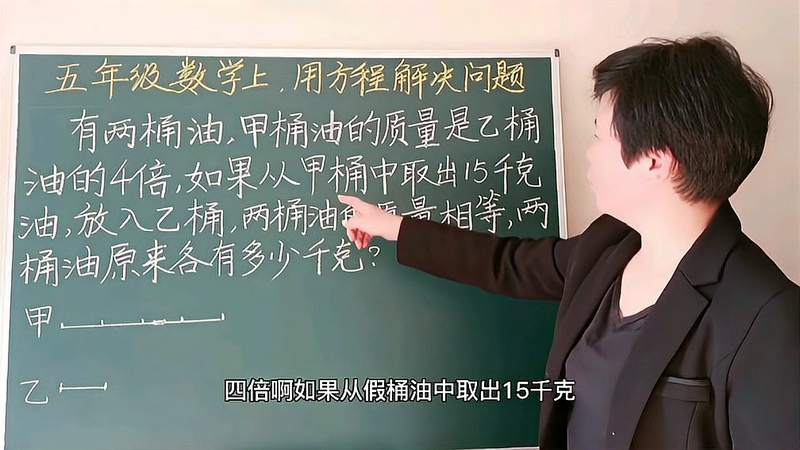 五年级数学上,用方程解决问题
有两桶油,甲桶油的质量是乙桶
油的4倍,如果从甲桶中取出15千克
油,放入乙桶,两桶油的质量相等,两
桶油原来各有多少千克?
甲
乙
四倍啊如果从假桶油中取出15千克